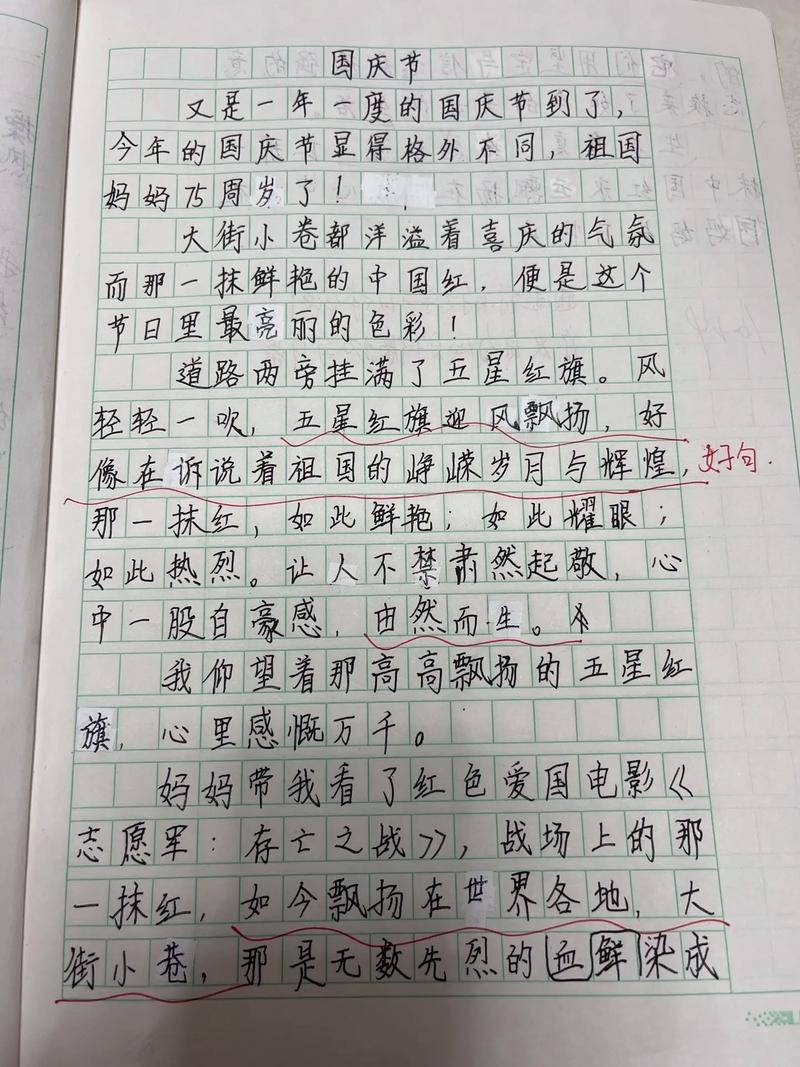 国庆节
又是一年一度的国庆节到了，
今年的国庆节显得格外不同，祖国
妈妈75周岁了！
大街小巷都洋溢着喜庆的气氛
而那一抹鲜艳的中国红，便是这个
节日里最亮丽的色彩！
道路两旁挂满了五星红旗。风
轻轻一吹，五星红旗迎风飘扬，好
像在诉说着祖国的峥嵘岁月与辉煌，
好句.
那一抹红，如此鲜艳；如此耀眼；
如此热烈。让人不禁肃然起敬，心
中一股自豪感，由然而生。
我仰望着那高高飘扬的五星红
旗，心里感慨万千。
妈妈带我看了红色爱国电影《
志愿军：存亡之战》，战场上的那
一抹红，如今飘扬在世界各地，大
街小巷，那是无数先烈的血鲜染成